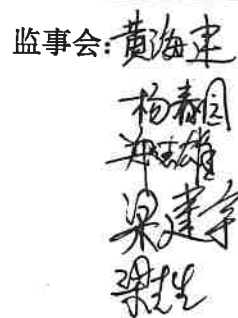 监事会:黄海建
杨春园
郑志雄
梁建宇
梁志生